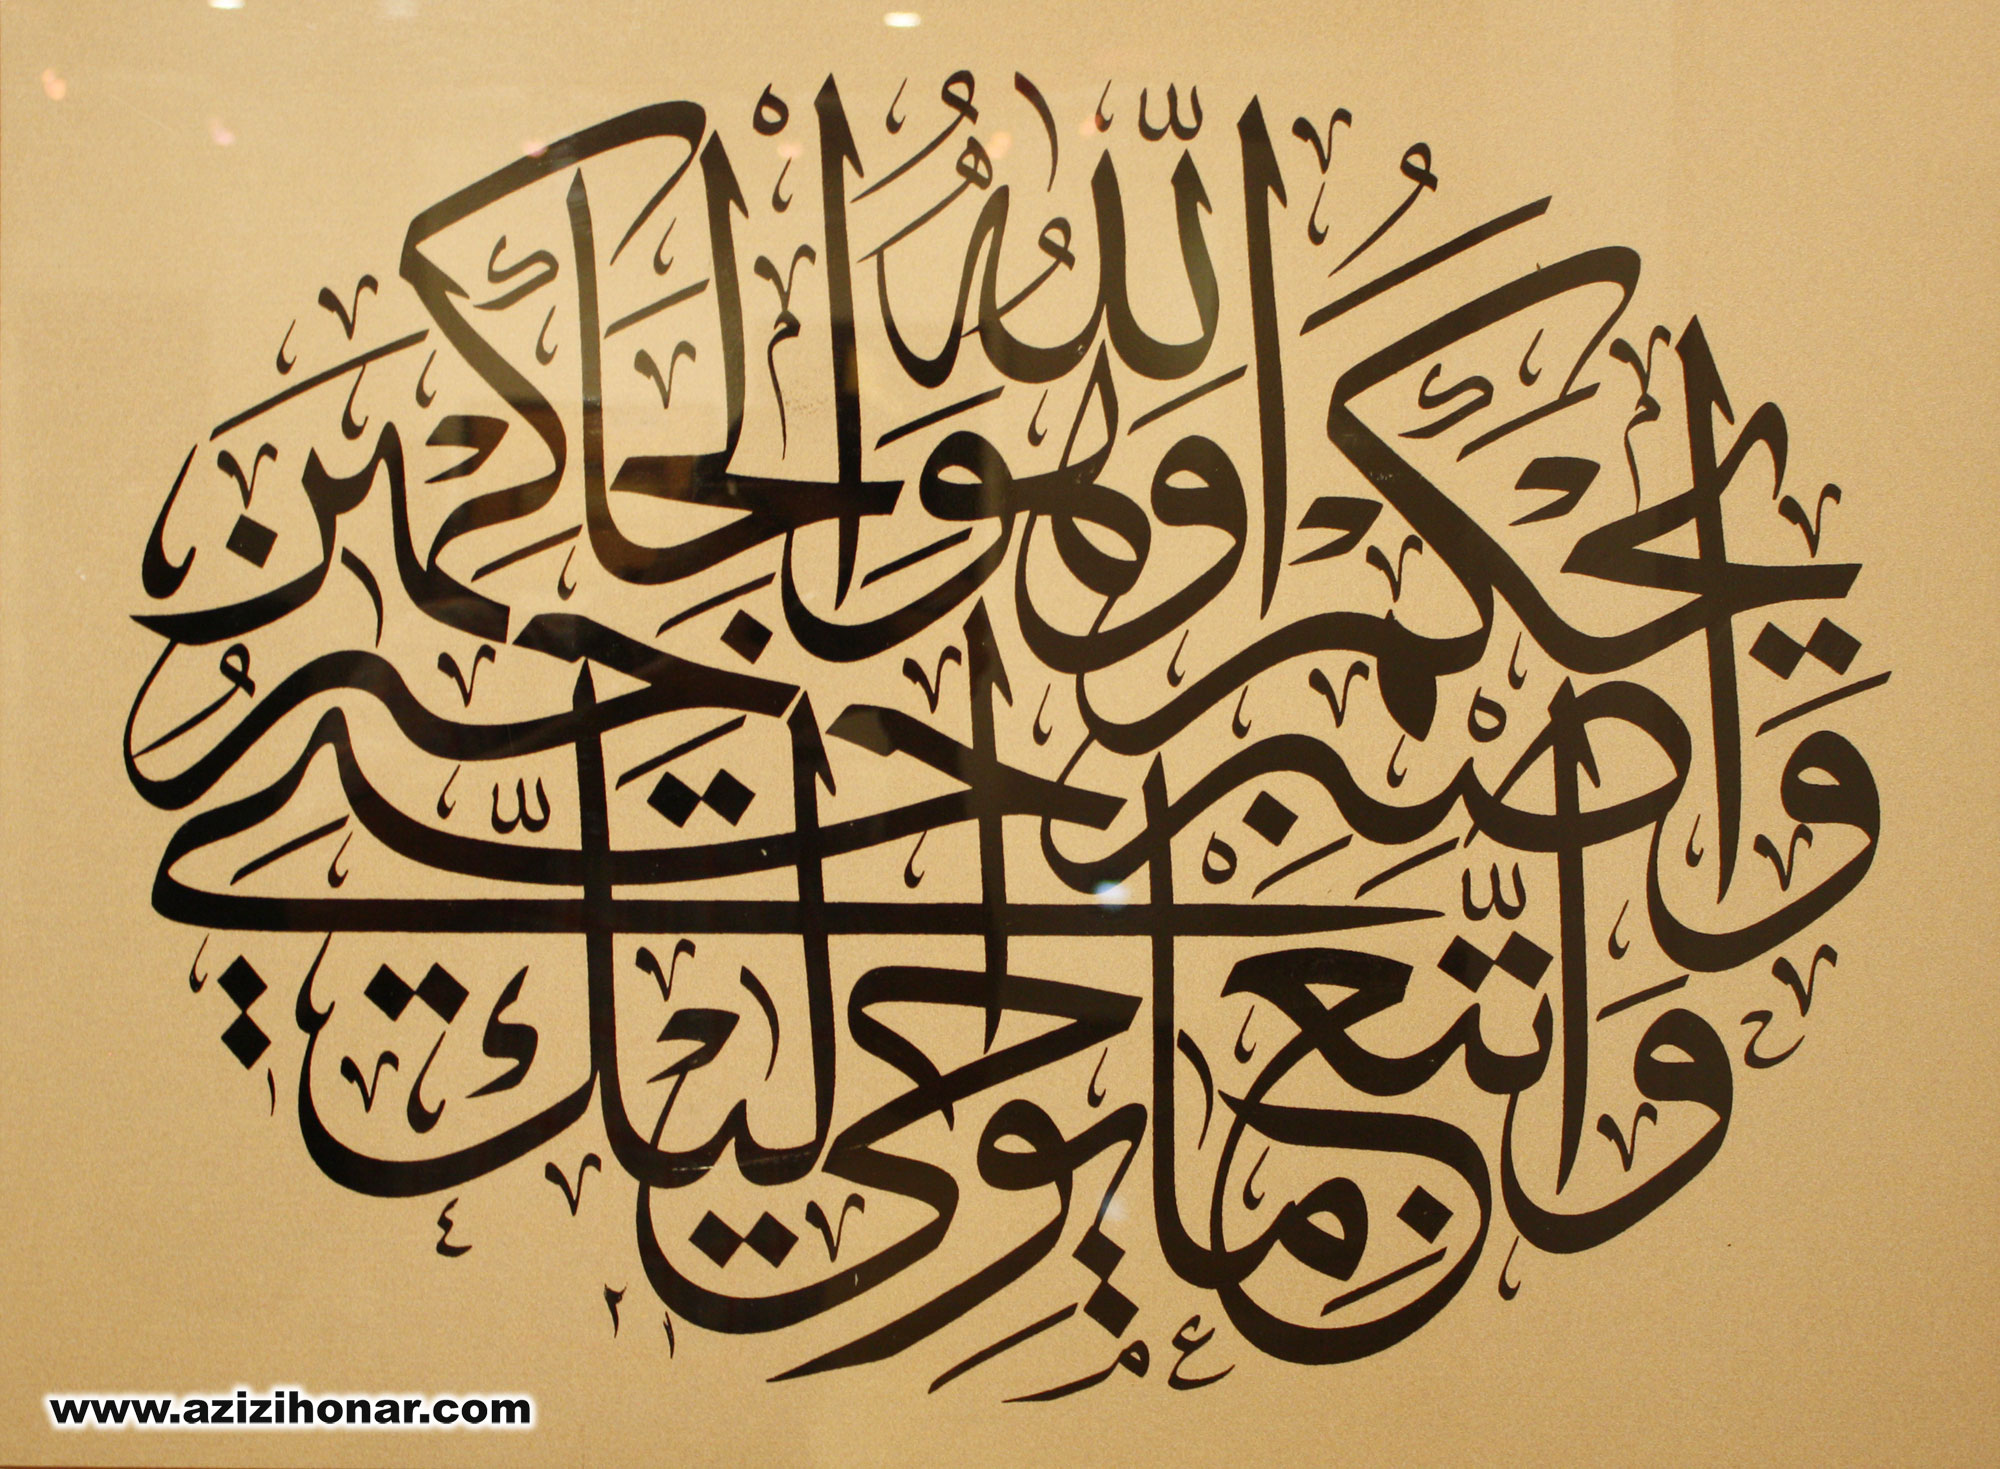 وَاتَّبِعْ مَا يُوحَىٰ إِلَيْكَ
وَاصْبِرْ حَتَّىٰ
يَحْكُمَ اللَّهُ وَهُوَ خَيْرُ الْحَاكِمِينَ
www.azizihonar.com